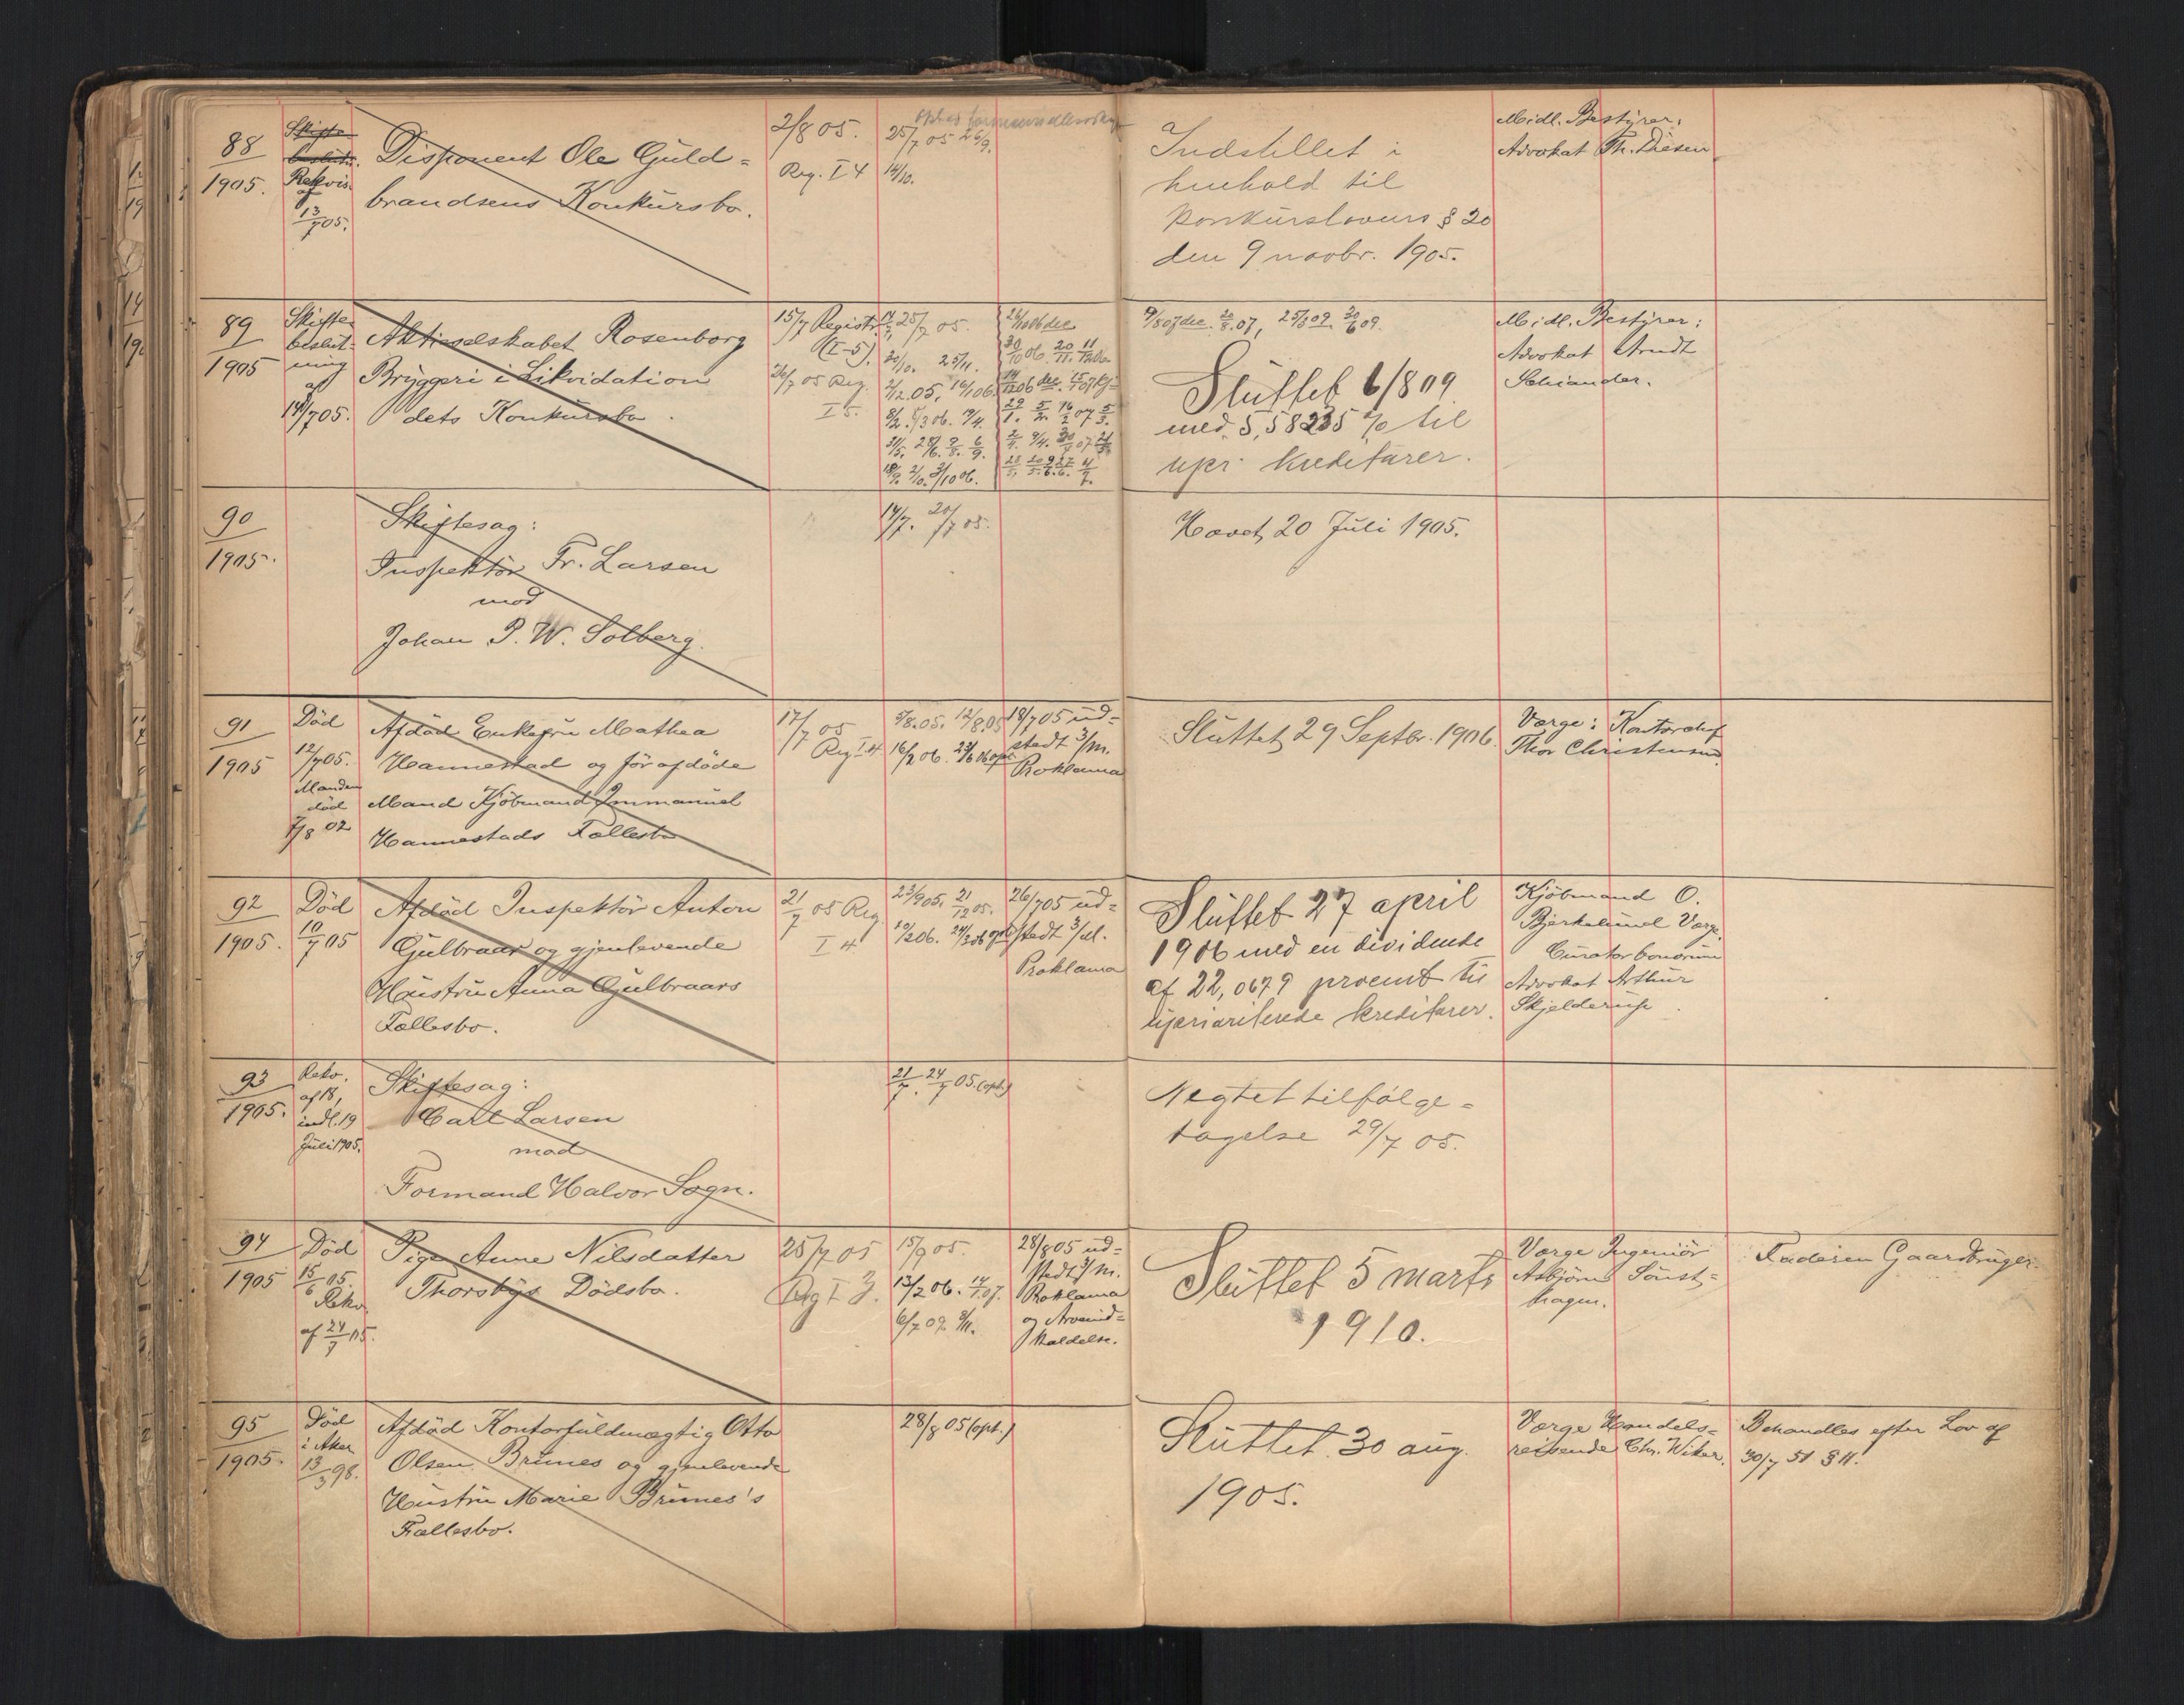 88
1905.
Skifte
beslutn.
Rekvis.
af
13/7 05.
Disponent Ole Guld=
brandsens Konkursbo.
2/8 05.
Reg. I 4
25/7 05 26/9.
14/10.
Indstillet i
henhold til
konkurslovens § 20
den 9 novbr. 1905.
Midl. Bestyrer:
Advokat Th. Diesen
89
1905
Skifte
beslut=
ning
af
14/7 05.
Aktieselskabet Rosenborg
Bryggeri i Likvidation
dets Konkursbo.
15/7 Registr.
(I-5).
26/7 05 Reg.
I 5.
25/7 05.
20/10. 25/11.
2/12 05, 16/1 06.
Sluttet 6/8 09
med 5,58235 % til
upr. kreditorer.
Midl. Bestyrer:
Advokat Arndt
Schiander.
90
1905.
Skiftesag:
Inspektör Fr. Larsen
mod
Johan P. W. Solberg.
14/7. 20/7 05.
Hævet 20 Juli 1905.
91
1905
Död
12/7 05.
Manden
död
7/8 02
Afdöd Enkefru Mathea
Hannestad og förafdöde
Mand Kjöbmand Immanuel
Hannestads Fællesbo
17/7 05
Reg I 4
5/8.05. 12/8.05
16/2 06.
18/7 05 ud=
stedt 3/m.
Proklama
Sluttet 29 Septbr. 1906.
Værge: Kontorchef
Thor Christensen.
92
1905.
Död
10/7 05
Afdöd Inspektör Anton
Gulbraar og gjenlevende
Hustru Anna Gulbraars
Fællesbo.
21/7 05 Reg.
I 4
23/9 05. 21/12 05.
26/7 05 ud=
stedt 3/m.
Proklama
Sluttet 27 april
1906 med en dividende
af 22,0679 procent til
upriariterede kreditorer.
Kjöbmand O.
Bjerkelund Værge.
Curator bonorum
Advokat Arthur
Skjelderup
93
1905.
Rekv.
af 18,
indl. 19
Juli 1905.
Skiftesag:
Carl Larsen
mod
Formand Halvor Sogn.
21/7. 24/7 05 (opt.)
Negtet tilfölge=
tagelse 29/7 05.
94
1905
Död
15/6 05.
Rekv.
af 24/7 05.
Pige Anne Nilsdatter
Thorsbys Dödsbo.
25/7 05
Reg I 3.
15/9 05.
13/2 06. 14/1 07.
6/7 09
28/8 05 ud=
stedt 3/m.
Proklama
og Arveind=
kaldelse.
Sluttet 5 marts
1910.
Værge Ingeniör
Asbjörn Sönst=
hagen.
Faderen Gaardbruger
95
1905.
Död
i Aker
13/3 98.
Afdöd Kontorfuldmægtig Otto
Olsen Brunes og gjenlevende
Hustru Marie Brunes's
Fællesbo.
28/8 05 (opt.)
Sluttet 30 aug.
1905.
Værge Handels=
reisende Chr. Wiker.
Behandles efter Lov af
30/7 51 § 11.